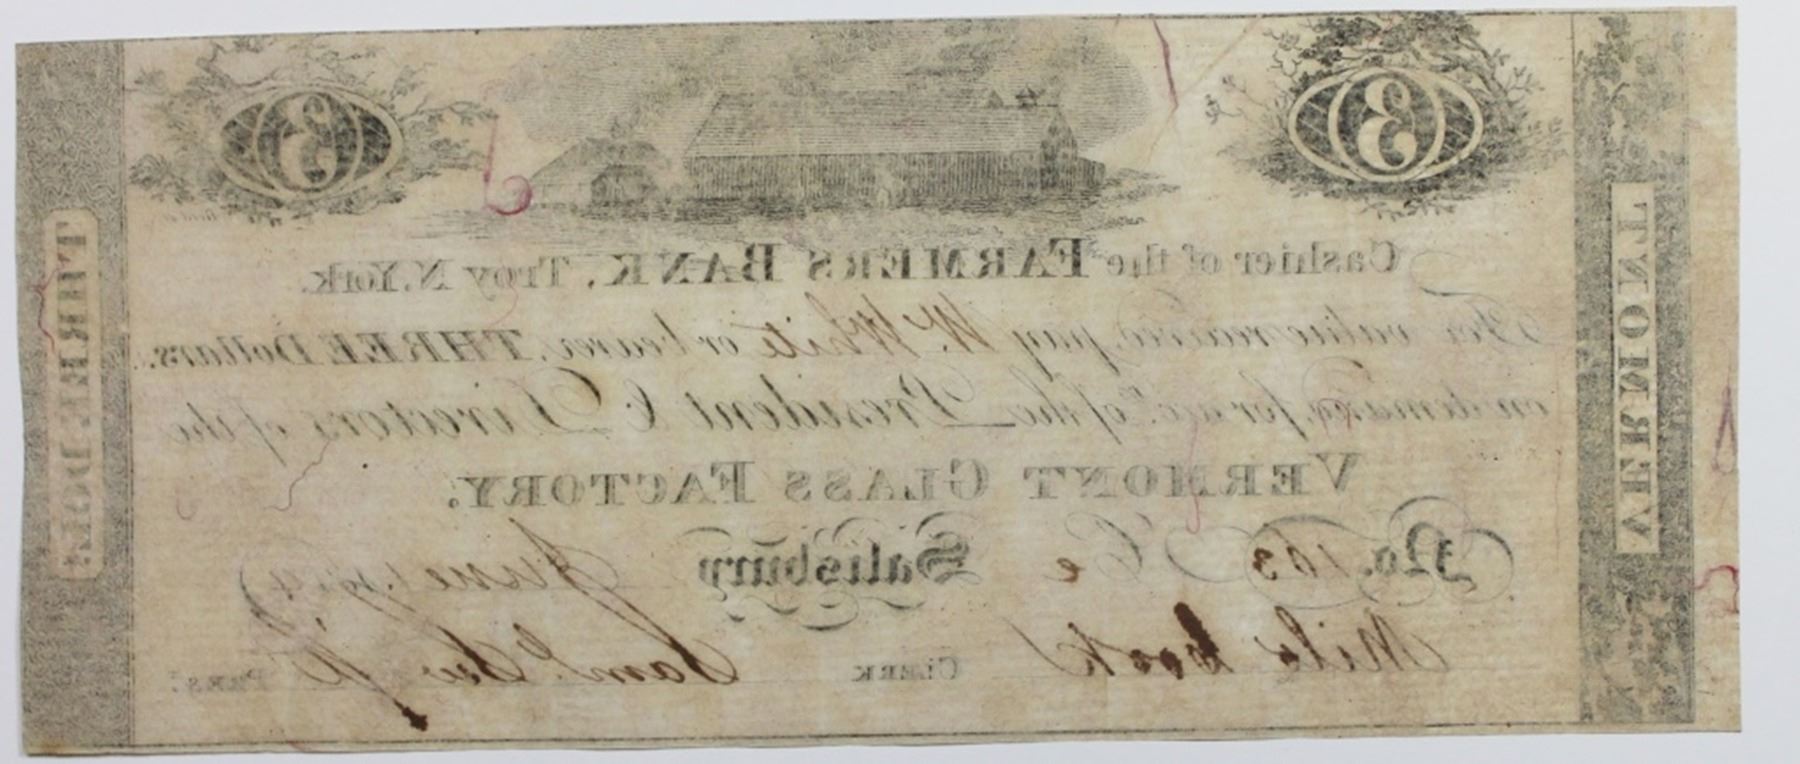 3 3
Cashier of the FARMERS BANK, Troy N. York.
For value received, pay W. White or bearer, THREE Dollars,
on demand, for acct. of the President & Directors of the
VERMONT GLASS FACTORY.
No. 163 C e Salisbury June 1, 1814
Milo Cook CLERK Saml. PRES.t
VERMONT
THREE DOL.